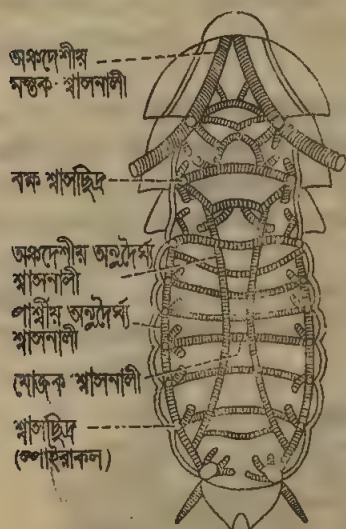 অঙ্কদেশীয়
মস্তক শ্বাসনালী
বক্ষ শ্বাসছিদ্র
অঙ্কদেশীয় অনুদৈর্ঘ্য
শ্বাসনালী
পার্শ্বীয় অনুদৈর্ঘ্য
শ্বাসনালী
যোজক শ্বাসনালী
শ্বাসছিদ্র
(স্পাইরাকল)